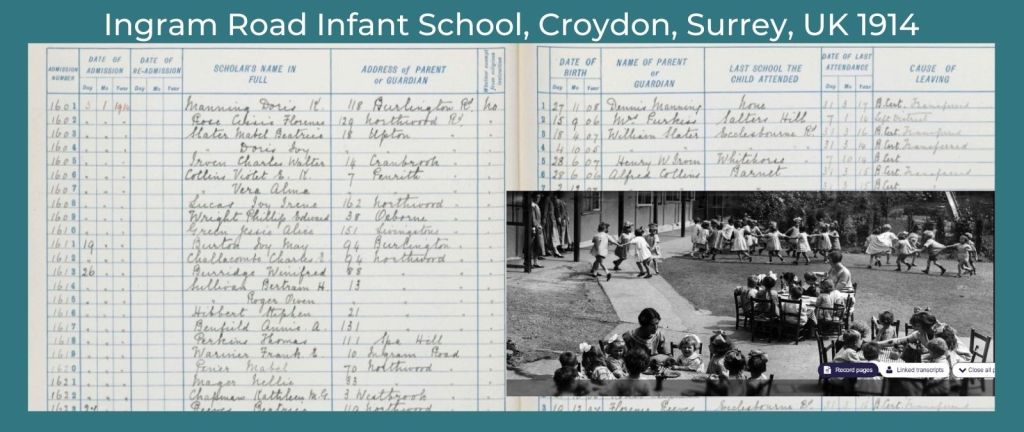 Ingram Road Infant School, Croydon, Surrey, UK 1914
ADMISSION NUMBER
DATE OF ADMISSION
Day Mo Year
DATE OF RE-ADMISSION
Day Mo Year
SCHOLAR'S NAME IN FULL
ADDRESS of PARENT or GUARDIAN
Whether exempt from religious instruction
DATE OF BIRTH
Day Mo Year
NAME OF PARENT or GUARDIAN
LAST SCHOOL THE CHILD ATTENDED
DATE OF LAST ATTENDANCE
Day Mo Year
CAUSE OF LEAVING
1601 3 1 1914 Manning Doris K. 118 Burlington Rd. No. 1 27 11 08 Dennis Manning None 31 3 17 B. Cert. Transferred
1602 Rose Florence 129 Northwood Rd. 2 15 9 06 Mrs Purkiss Salters Hill 7 1 14 Left District
1603 Slater Mabel Beatrice 18 Upton 3 18 4 07 William Slater Ecclesbourne Rd. 31 3 16 B Cert. Transferred
1604 " Doris Ivy 4 4 10 05 31 3 14 B Cert. Transferred
1605 Irven Charles Walter 14 Cranbrook 5 28 6 07 Henry W. Irven Whitehorse 7 10 14 B Cert
1606 Collins Violet E. K. 7 Penrith 6 28 6 06 Alfred Collins Barnet 31 3 15 B. Cert. Transferred
1607 " Vera Alma B Cert.
1608 Lucas Ivy Irene 162 Northwood
1609 Wright Phillip Edward 38 Osborne
1610 Green Jessie Alice 151 Livingstone
1611 19 Burton Ivy May 94 Burlington
1612 Challacombe Charles 94 Northwood
1613 26 Burridge Winifred 88
1614 Sullivan Bertram H. 13
1615 " Roger Owen
1616 Hibbert Stephen 21
1617 Benfield Annie A. 131
1618 Perkins Thomas 111 Spa Hill
1619 Wariner Frank E. 10 Ingram Road
1620 Mabel 70 Northwood
1621 Mager Nellie 83
1622 Chapman Kathleen M.G. 3 Westbrook
1623 Reeves Beatrice 119 Northwood Florence Reeves Ecclesbourne Rd. B Cert. Transferred
Record pages
Linked transcripts
Close all p